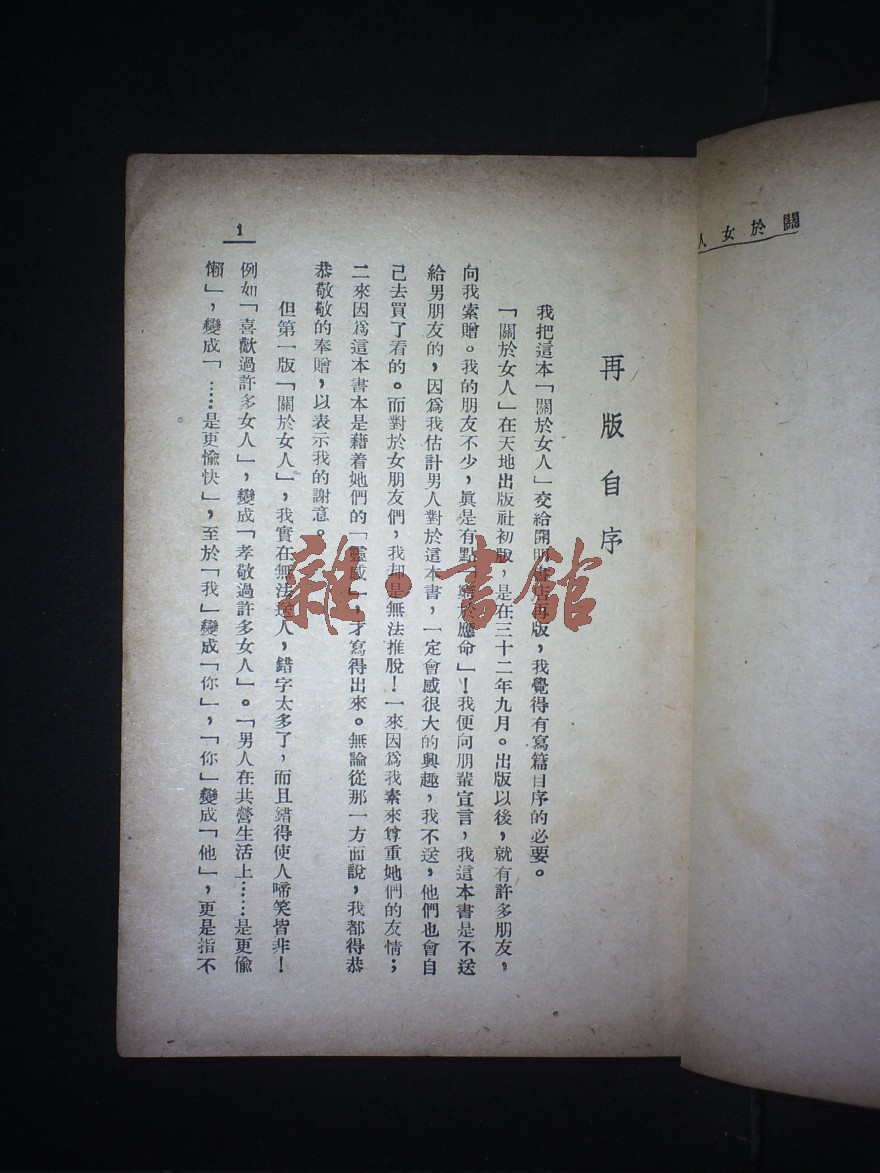 關於女人
再版自序
我把這本「關於女人」交給開明書店再版，我覺得有寫篇自序的必要。
「關於女人」在天地出版社初版，是在三十二年九月。出版以後，就有許多朋友，
向我索贈。我的朋友不少，眞是有點「窮於應命」！我便向朋輩宣言，我這本書是不送
給男朋友的，因爲我估計男人對於這本書，一定會感很大的興趣，我不送，他們也會自
己去買了看的。而對於女朋友們，我却是無法推脫！一來因爲我素來尊重她們的友情；
二來因爲這本書本是藉着她們的「靈感」，才寫得出來。無論從那一方面說，我都得恭
恭敬敬的奉贈，以表示我的謝意。
但第一版「關於女人」，我實在無法送人，錯字太多了，而且錯得使人啼笑皆非！
例如「喜歡過許多女人」，變成「孝敬過許多女人」。「男人在共營生活上……是更偷
懶」，變成「……是更愉快」，至於「我」變成「你」，「你」變成「他」，更是指不
1
雜·書館